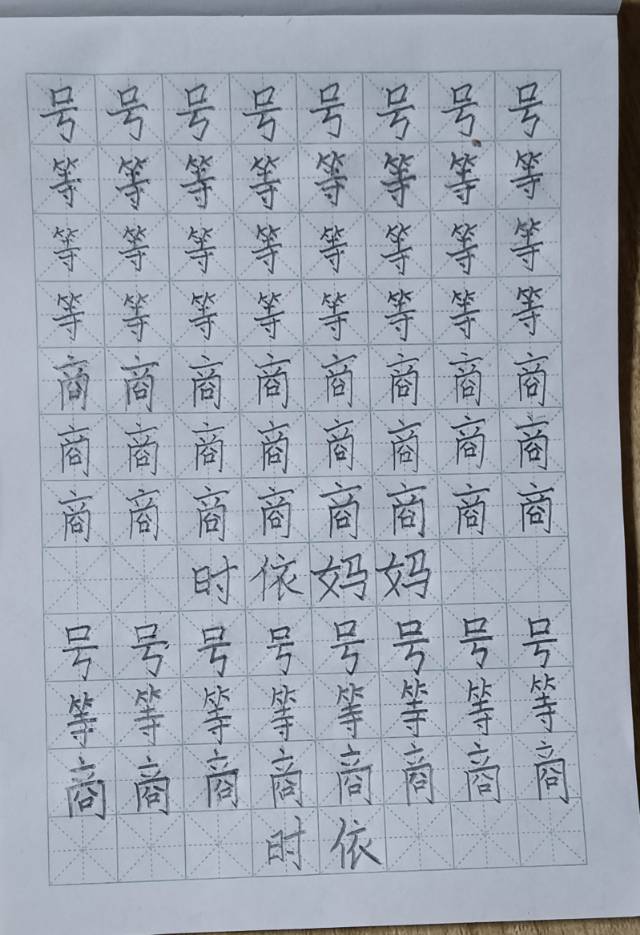 号号号号号号号号
等等等等等等等等
等等等等等等等等
等等等等等等等等
商商商商商商商商
商商商商商商商商
商商商商商商商商
时依妈妈
号号号号号号号号
等等等等等等等等
商商商商商商商商
时依